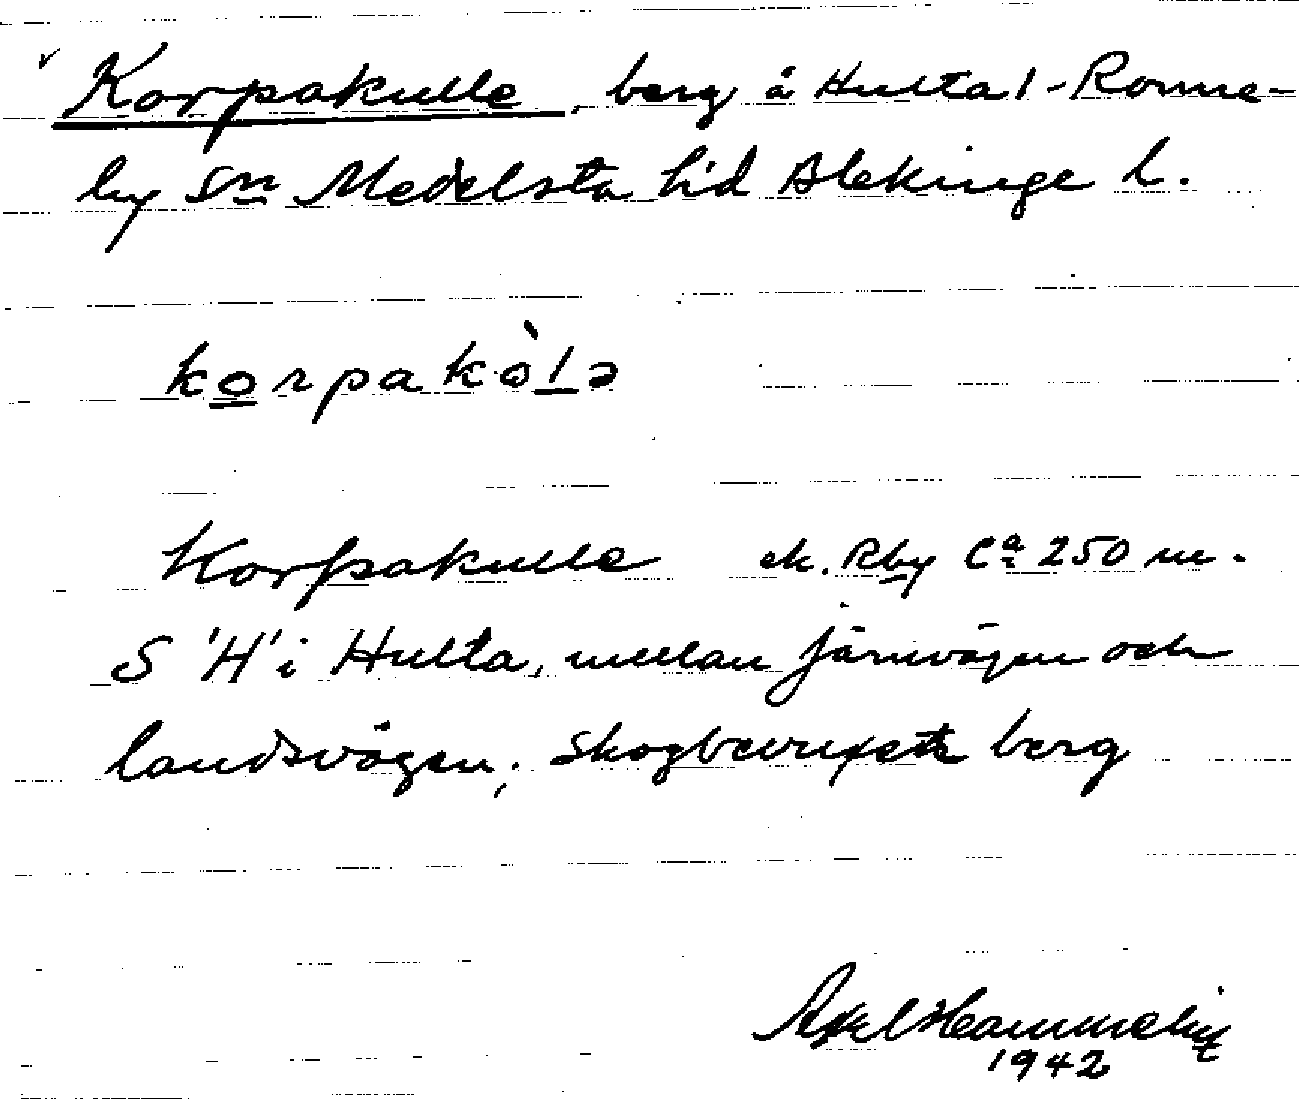 Korpakulle, berg å Hulta 1 - Ronne-
by sn Medelsta hd Blekinge l.
korpakòlə
Korpakulle ek. Rby Ca 250 m.
S 'H' i Hulta, mellan järnvägen och
landsvägen; Skogbevuxet berg
Axel
1942